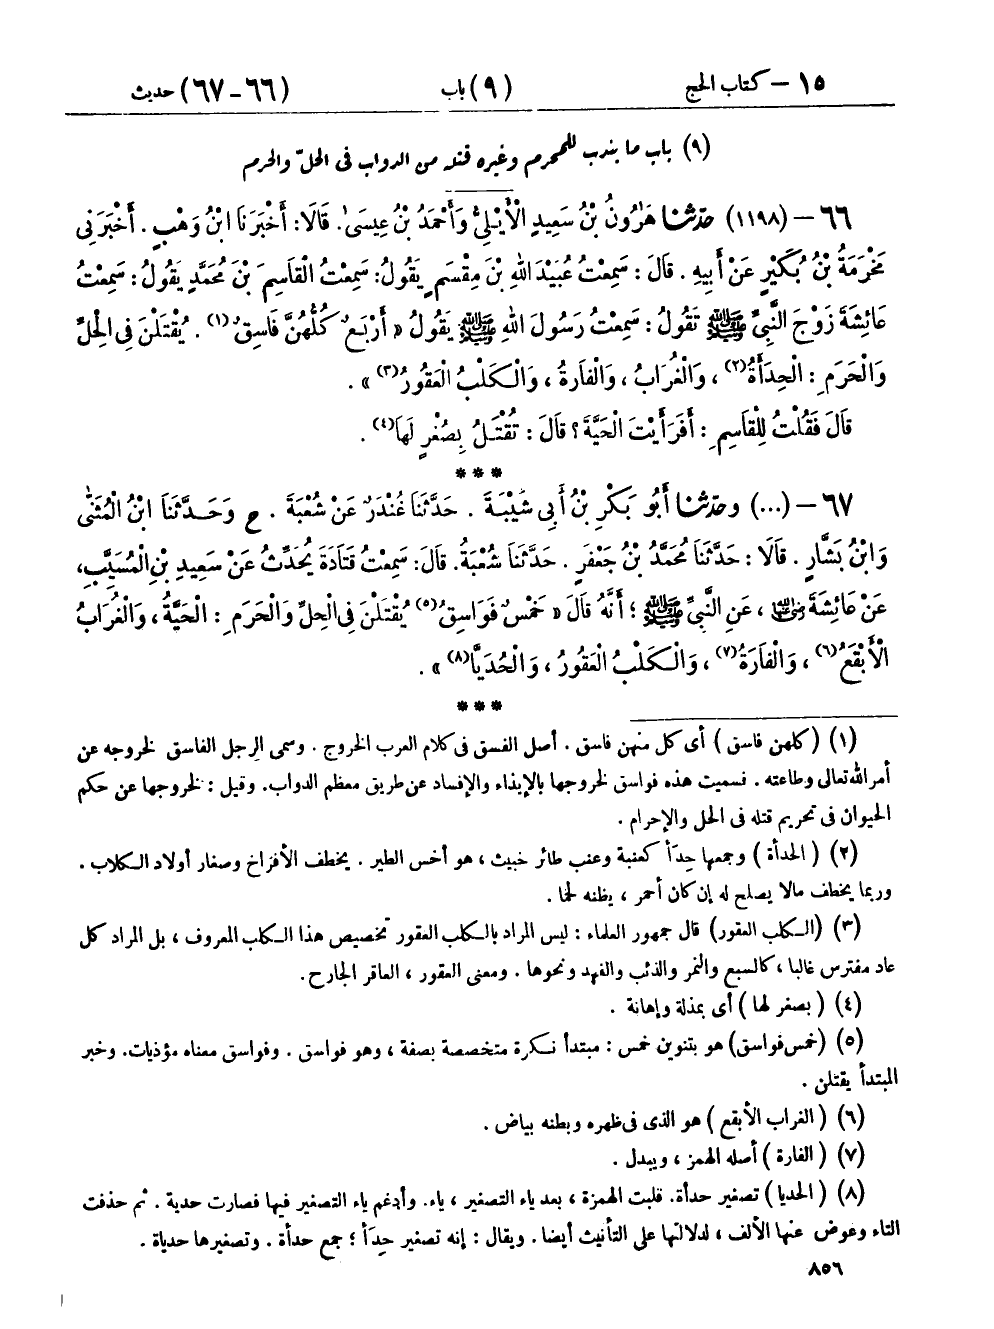 ١٥ – كتاب الحج (٩) باب (٦٦-٦٧) حديث
(٩) باب ما يندب للمحرم وغيره قتله من الدواب فى الحلّ والحرم
٦٦ – (١١٩٨) حدّثنا هَرُونُ بْنُ سَعِيدٍ الْأَيْلِىُّ وَأَحْمَدُ بْنُ عِيسَىٰ. قَالَا: أَخْبَرَنَا ابْنُ وَهْبٍ. أَخْبَرَنِى
مَخْرَمَةُ بْنُ بُكَيْرٍ عَنْ أَبِيهِ. قَالَ: سَمِعْتُ عُبَيْدَ اللهِ بْنَ مِقْسَمٍ يَقُولُ: سَمِعْتُ الْقَاسِمَ بْنَ مُحَمَّدٍ يَقُولُ: سَمِعْتُ
عَائِشَةَ زَوْجَ النَّبِىِّ ﷺ تَقُولُ: سَمِعْتُ رَسُولَ اللهِ ﷺ يَقُولُ « أَرْبَعٌ كُلُّهُنَّ فَاسِقٌ(١). يُقْتَلْنَ فِى الْحِلِّ
وَالْحَرَمِ: الْحِدَأَةُ(٢)، وَالْغُرَابُ، وَالْفَارَةُ، وَالْكَلْبُ الْعَقُورُ(٣) ».
قَالَ فَقُلْتُ لِلْقَاسِمِ: أَفَرَأَيْتَ الْحَيَّةَ؟ قَالَ: تُقْتَلُ بِصُغْرٍ لَهَا(٤).
***
٦٧ – (...) وحدّثنا أَبُو بَكْرِ بْنُ أَبِى شَيْبَةَ. حَدَّثَنَا غُنْدَرٌ عَنْ شُعْبَةَ. ح وَحَدَّثَنَا ابْنُ الْمُثَنَّىٰ
وَابْنُ بَشَّارٍ. قَالَا: حَدَّثَنَا مُحَمَّدُ بْنُ جَعْفَرٍ. حَدَّثَنَا شُعْبَةُ. قَالَ: سَمِعْتُ قَتَادَةَ يُحَدِّثُ عَنْ سَعِيدِ بْنِ الْمُسَيَّبِ،
عَنْ عَائِشَةَ رضي الله عنها، عَنِ النَّبِىِّ ﷺ؛ أَنَّهُ قَالَ « خَمْسٌ فَوَاسِقُ(٥) يُقْتَلْنَ فِى الْحِلِّ وَالْحَرَمِ: الْحَيَّةُ، وَالْغُرَابُ
الْأَبْقَعُ(٦)، وَالْفَارَةُ(٧)، وَالْكَلْبُ الْعَقُورُ، وَالْحُدَيَّا(٨) ».
***
(١) (كلهن فاسق) أى كل منهن فاسق. أصل الفسق فى كلام العرب الخروج. وسمى الرجل الفاسق لخروجه عن
أمر الله تعالى وطاعته. فسميت هذه فواسق لخروجها بالإيذاء والإفساد عن طريق معظم الدواب. وقيل: لخروجها عن حكم
الحيوان فى تحريم قتله فى الحل والإحرام.
(٢) (الحدأة) وجمعها حِدَأ كعنبة وعنب طائر خبيث، هو أخس الطير. يخطف الأفراخ وصغار أولاد الكلاب.
وربما يخطف مالا يصلح له إن كان أحمر، يظنه لحما.
(٣) (الكلب العقور) قال جمهور العلماء: ليس المراد بالكلب العقور تخصيص هذا الكلب المعروف، بل المراد كل
عاد مفترس غالبا، كالسبع والنمر والذئب والفهد ونحوها. ومعنى العقور، العاقر الجارح.
(٤) (بصغر لها) أى بمذلة وإهانة.
(٥) (خمس فواسق) هو بتنوين خمس: مبتدأ نكرة متخصصة بصفة، وهو فواسق. وفواسق معناه مؤذيات. وخبر
المبتدأ يقتلن.
(٦) (الغراب الأبقع) هو الذى فى ظهره وبطنه بياض.
(٧) (الفارة) أصله الهمز، ويبدل.
(٨) (الحديا) تصغير حدأة. قلبت الهمزة، بعد ياء التصغير، ياء. وأدغم ياء التصغير فيها فصارت حدية. ثم حذفت
التاء وعوض عنها الألف، لدلالتها على التأنيث أيضا. ويقال: إنه تصغير حِدَأ؛ جمع حدأة. وتصغيرها حدياة.
٨٥٦